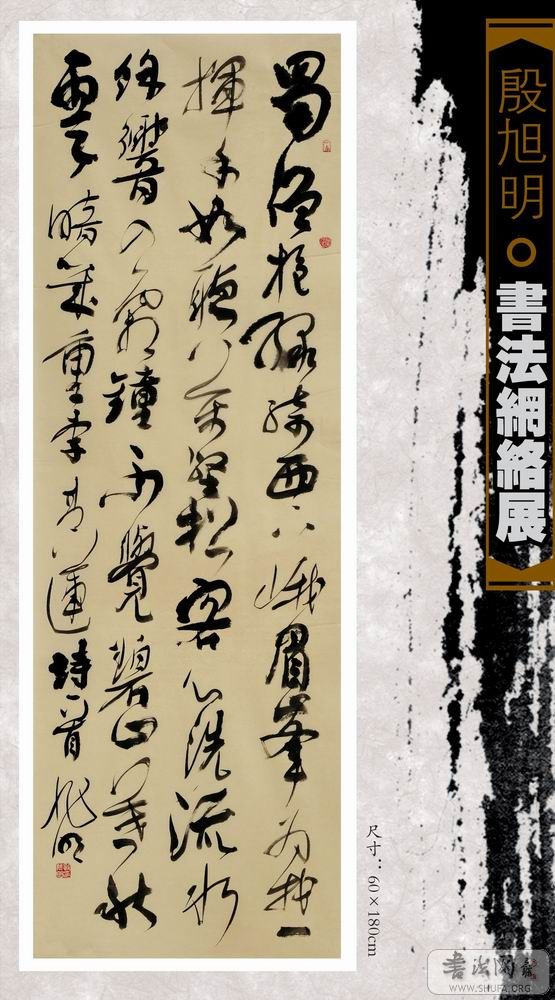 殷旭明
書法網絡展
蜀僧抱綠綺西下峨眉峯為我一
揮手如聽萬壑松客心洗流水
餘響入霜鐘不覺碧山暮秋
雲暗幾重李青蓮詩一首旭明
尺寸：60×180cm
書法網
WWW.SHUFA.ORG